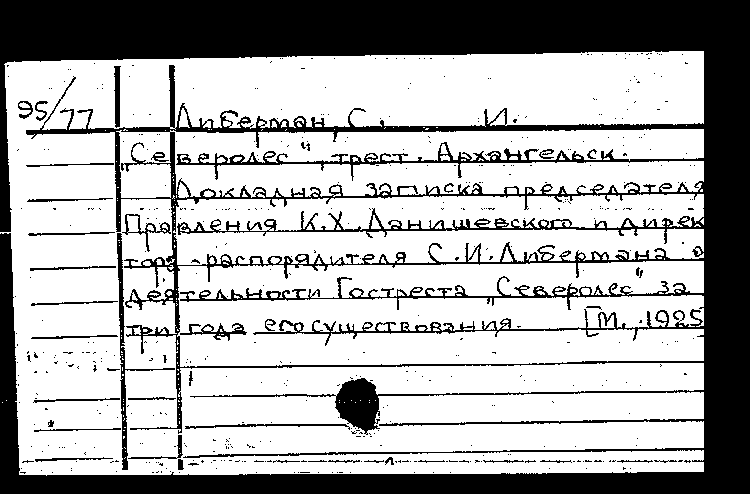 95/77
Либерман, С. И.
„Северолес", трест. Архангельск.
Докладная записка председателя
Правления К.Х.Данишевского и дирек
тора-распорядителя С.И.Либермана о
деятельности Гостреста „Северолес" за
три года его существования. [М., 1925